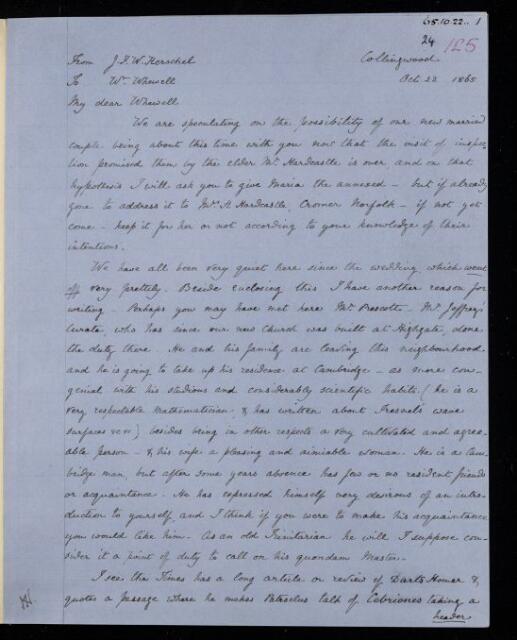 65.10.22.. 1
24 125
From J.F.W. Herschel Collingwood
To Wm. Whewell Oct. 22 1865
My dear Whewell
We are speculating on the possibility of our new married
couple being about this time with you now that the visit of inspec-
tion promised them by the elder Mr. Hardcastle is over and on that
hypothesis I will ask you to give Maria the annexed - but if already
gone to address it to Mrs. H Hardcastle Cromer Norfolk - if not yet
come - keep it for her or not according to your knowledge of their
intentions.
We have all been very quiet here since the wedding which went
off very prettily. Beside enclosing this I have another reason for
writing - Perhaps you may have met here Mr. Prescott - Mr. Joffray's
Curate, who has since our new Church was built at Highgate, done
the duty there. He and his family are leaving this neighbourhood
and he is going to take up his residence at Cambridge - as more con-
genial with his studious and considerably scientific habits (he is a
very respectable mathematician, & has written about Fresnel's wave
surfaces &c &c) besides being in other respects a very cultivated and agree-
able person - & his wife a pleasing and aimiable woman. He is a Cam-
bridge man but after some years absence has few or no resident friends
or acquaintance. He has expressed himself very desirous of an intro-
duction to yourself and I think if you were to make his acquaintance
you would like him. As an old Trinitarian he will I suppose con-
sider it a point of duty to call on his quondam Master.
I see the Times has a long article or review of Dart's Homer &
quotes a passage where he makes Patroclus talk of Cebriones taking a
header